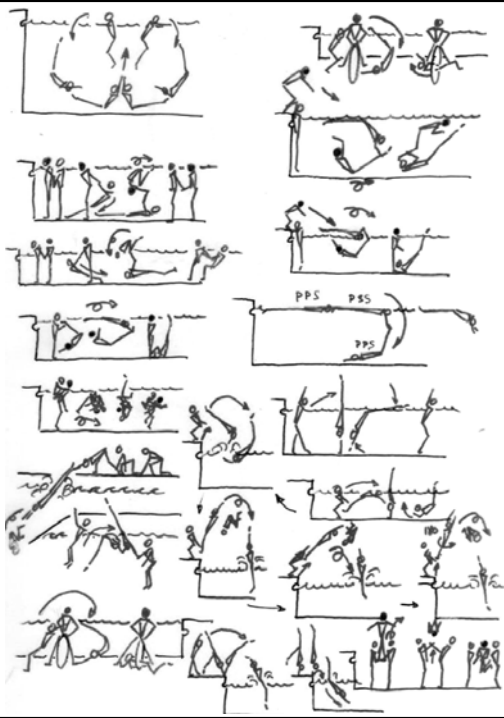 PPS PBS
PPS